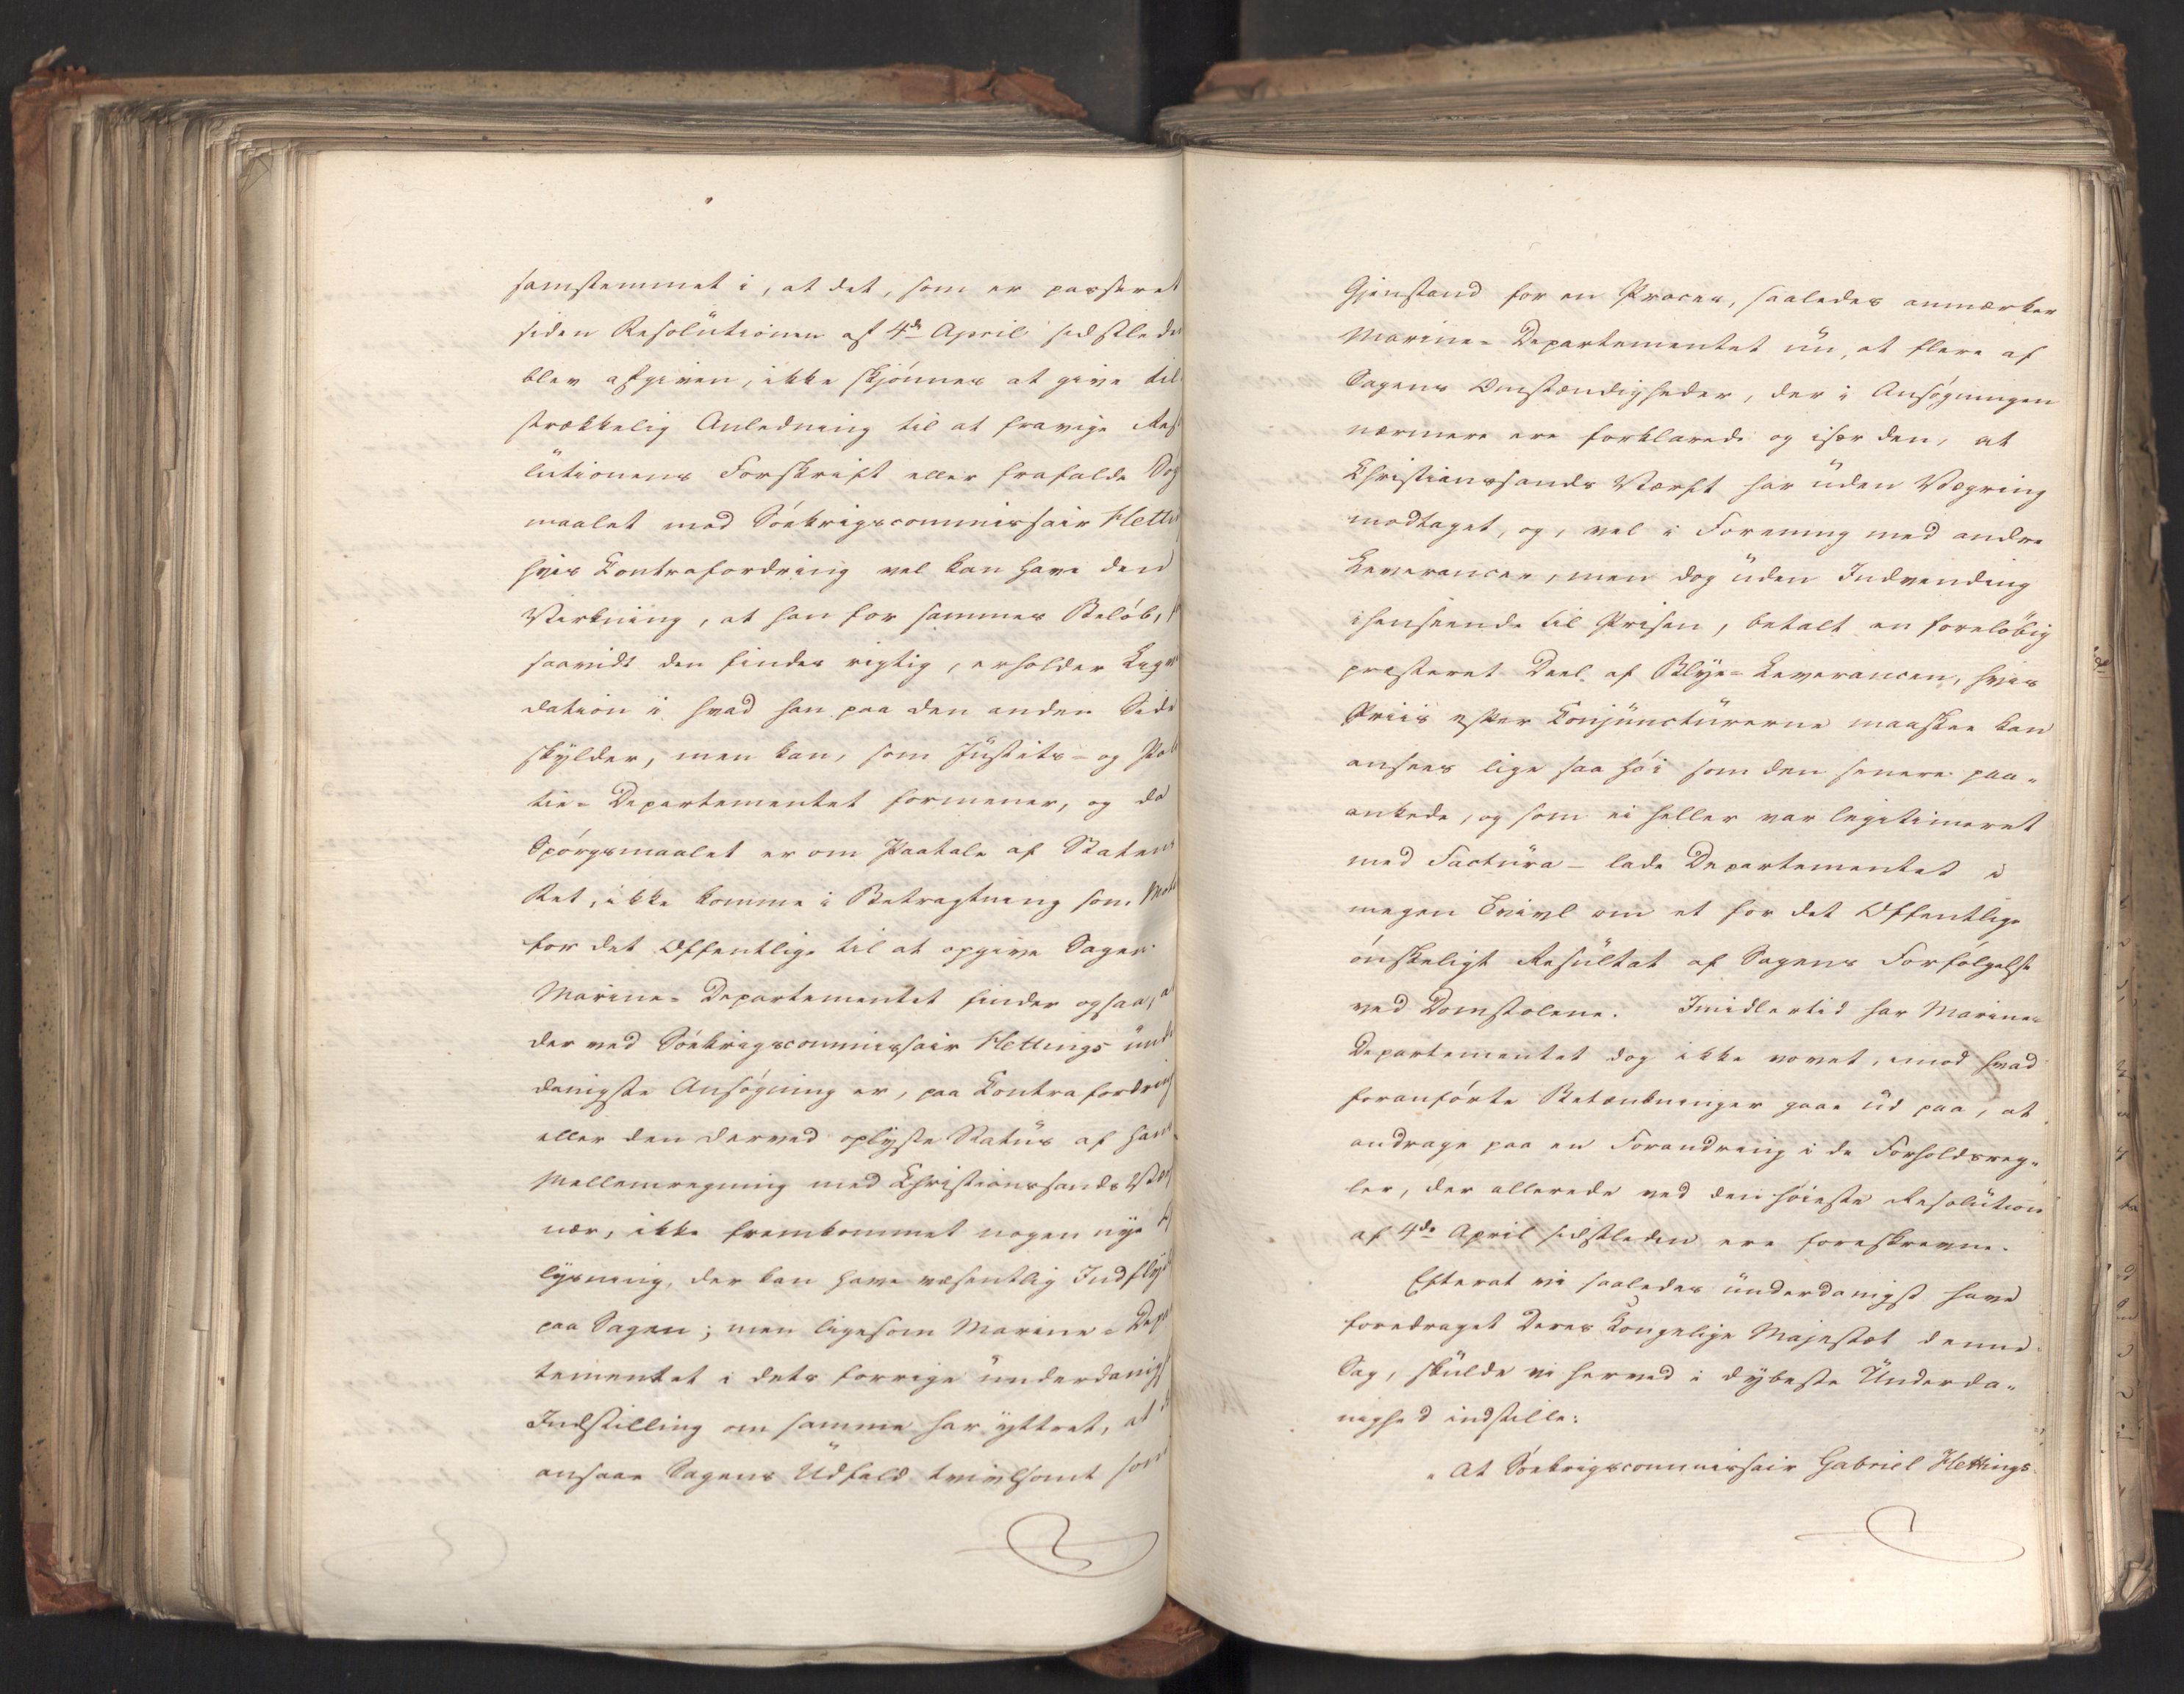 samstemmet i, at det, som er passeret
siden Resolutionen af 4de April sidstleden
blev afgiven, ikke skjønnes at give til-
strækkelig Anledning til at fravige Reso
lutionens Forskrift eller frafalde Søg
maalet mod Søekrigscommissair Hetting
hvis Contrafordring vel kan have den
Virkning, at han for sammes Beløb,
saavidt den findes rigtig, erholder Liqvi
dation i hvad han paa den anden Side
skylder, men kan, som Justits- og Poli
tie-Departementet formener, og da
Spørgsmaalet er om Paatale af Statens
Ret, ikke komme i Betragtning som Motiv
for det Offentlige til at opgive Sagen.
Marine-Departementet finder ogsaa, at
der ved Søekrigscommissair Hettings unde
danigste Ansøgning er, paa Contrafordring
eller den derved oplyste Status af hans
Mellemregning med Christianssands Værf
nær, ikke fremkommet nogen nye
lysning, der kan have væsentlig Indflyd
paa Sagen; men ligesom Marine-Depar
tementet i dets forrige underdanigst
Indstilling om samme har yttret, at
ansaae Sagens Udfald tvivlsomt som
Gjenstand for en Proces, saaledes anmærker
Marine-Departementet nu, at flere af
Sagens Omstændigheder, der i Ansøgningen
nærmere ere forklarede og især den, at
Christianssands Værft har uden Vægring
modtaget, og, vel i Forening med andre
Leverancer, men dog uden Indvending
ihenseende til Prisen, betalt en foreløbig
præsteret Deel af Blye-Leverancen, hvis
Priis efter Conjuncturerne maaskee kan
ansees lige saa høi som den senere paa-
ankede, og som ei heller var legitimeret
med Factura – lade Departementet i
megen Tvivl om et for det Offentlige
ønskeligt Resultat af Sagens Forfølgelse
ved Domstolene. Imidlertid har Marine-
Departementet dog ikke vovet, imod hvad
foranførte Betænkninger gaae ud paa, at
andrage paa en Forandring i de Forholdsreg-
ler, der allerede ved den høieste Resolution
af 4de April sidstleden ere foreskrevne.
Efterat vi saaledes underdanigst have
foredraget Deres Kongelige Majestæt denne
Sag, skulde vi herved i dybeste Underda-
nighed indstille:
"At Søekrigscommissair Gabriel Hettings